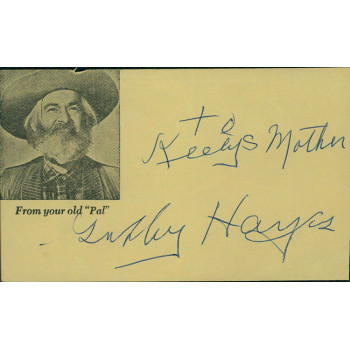 To
Keelys Mother
From your old "Pal"
Gabby Hayes